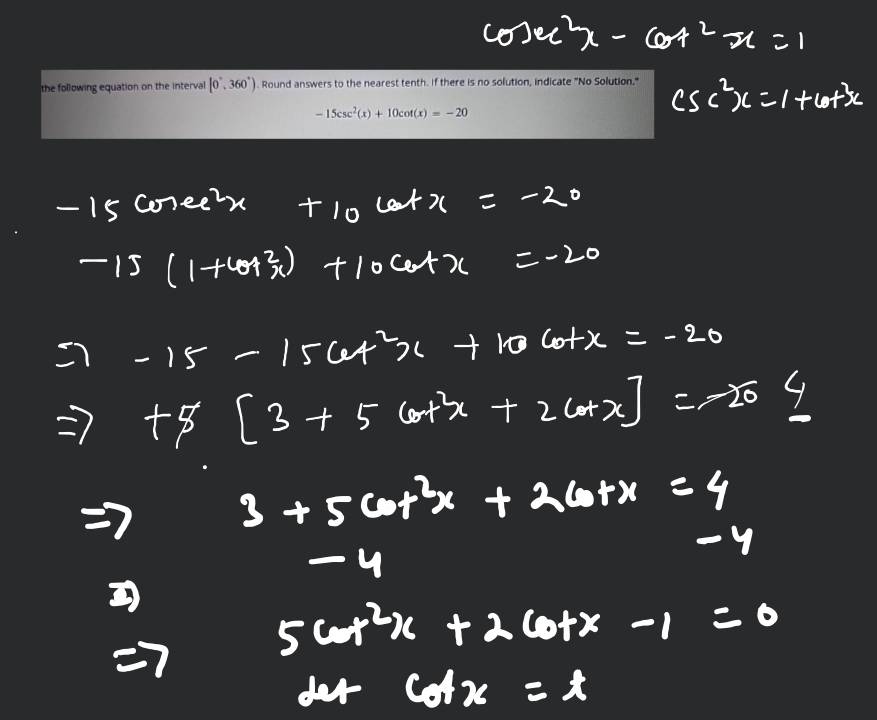 cosec²x - cot²x = 1
csc²x = 1 + cot²x
the following equation on the interval [0°, 360°). Round answers to the nearest tenth. If there is no solution, indicate "No Solution."
- 15csc²(x) + 10cot(x) = - 20
-15 cosec²x + 10 cot x = -20
-15 (1+cot²x) + 10 cot x = -20
⇒ -15 - 15 cot²x + 10 cot x = -20
⇒ +5 [3 + 5 cot²x + 2 cot x] = -20 4
⇒ 3 + 5 cot²x + 2 cot x = 4
-4 -4
⇒ 5 cot²x + 2 cot x - 1 = 0
let cot x = t